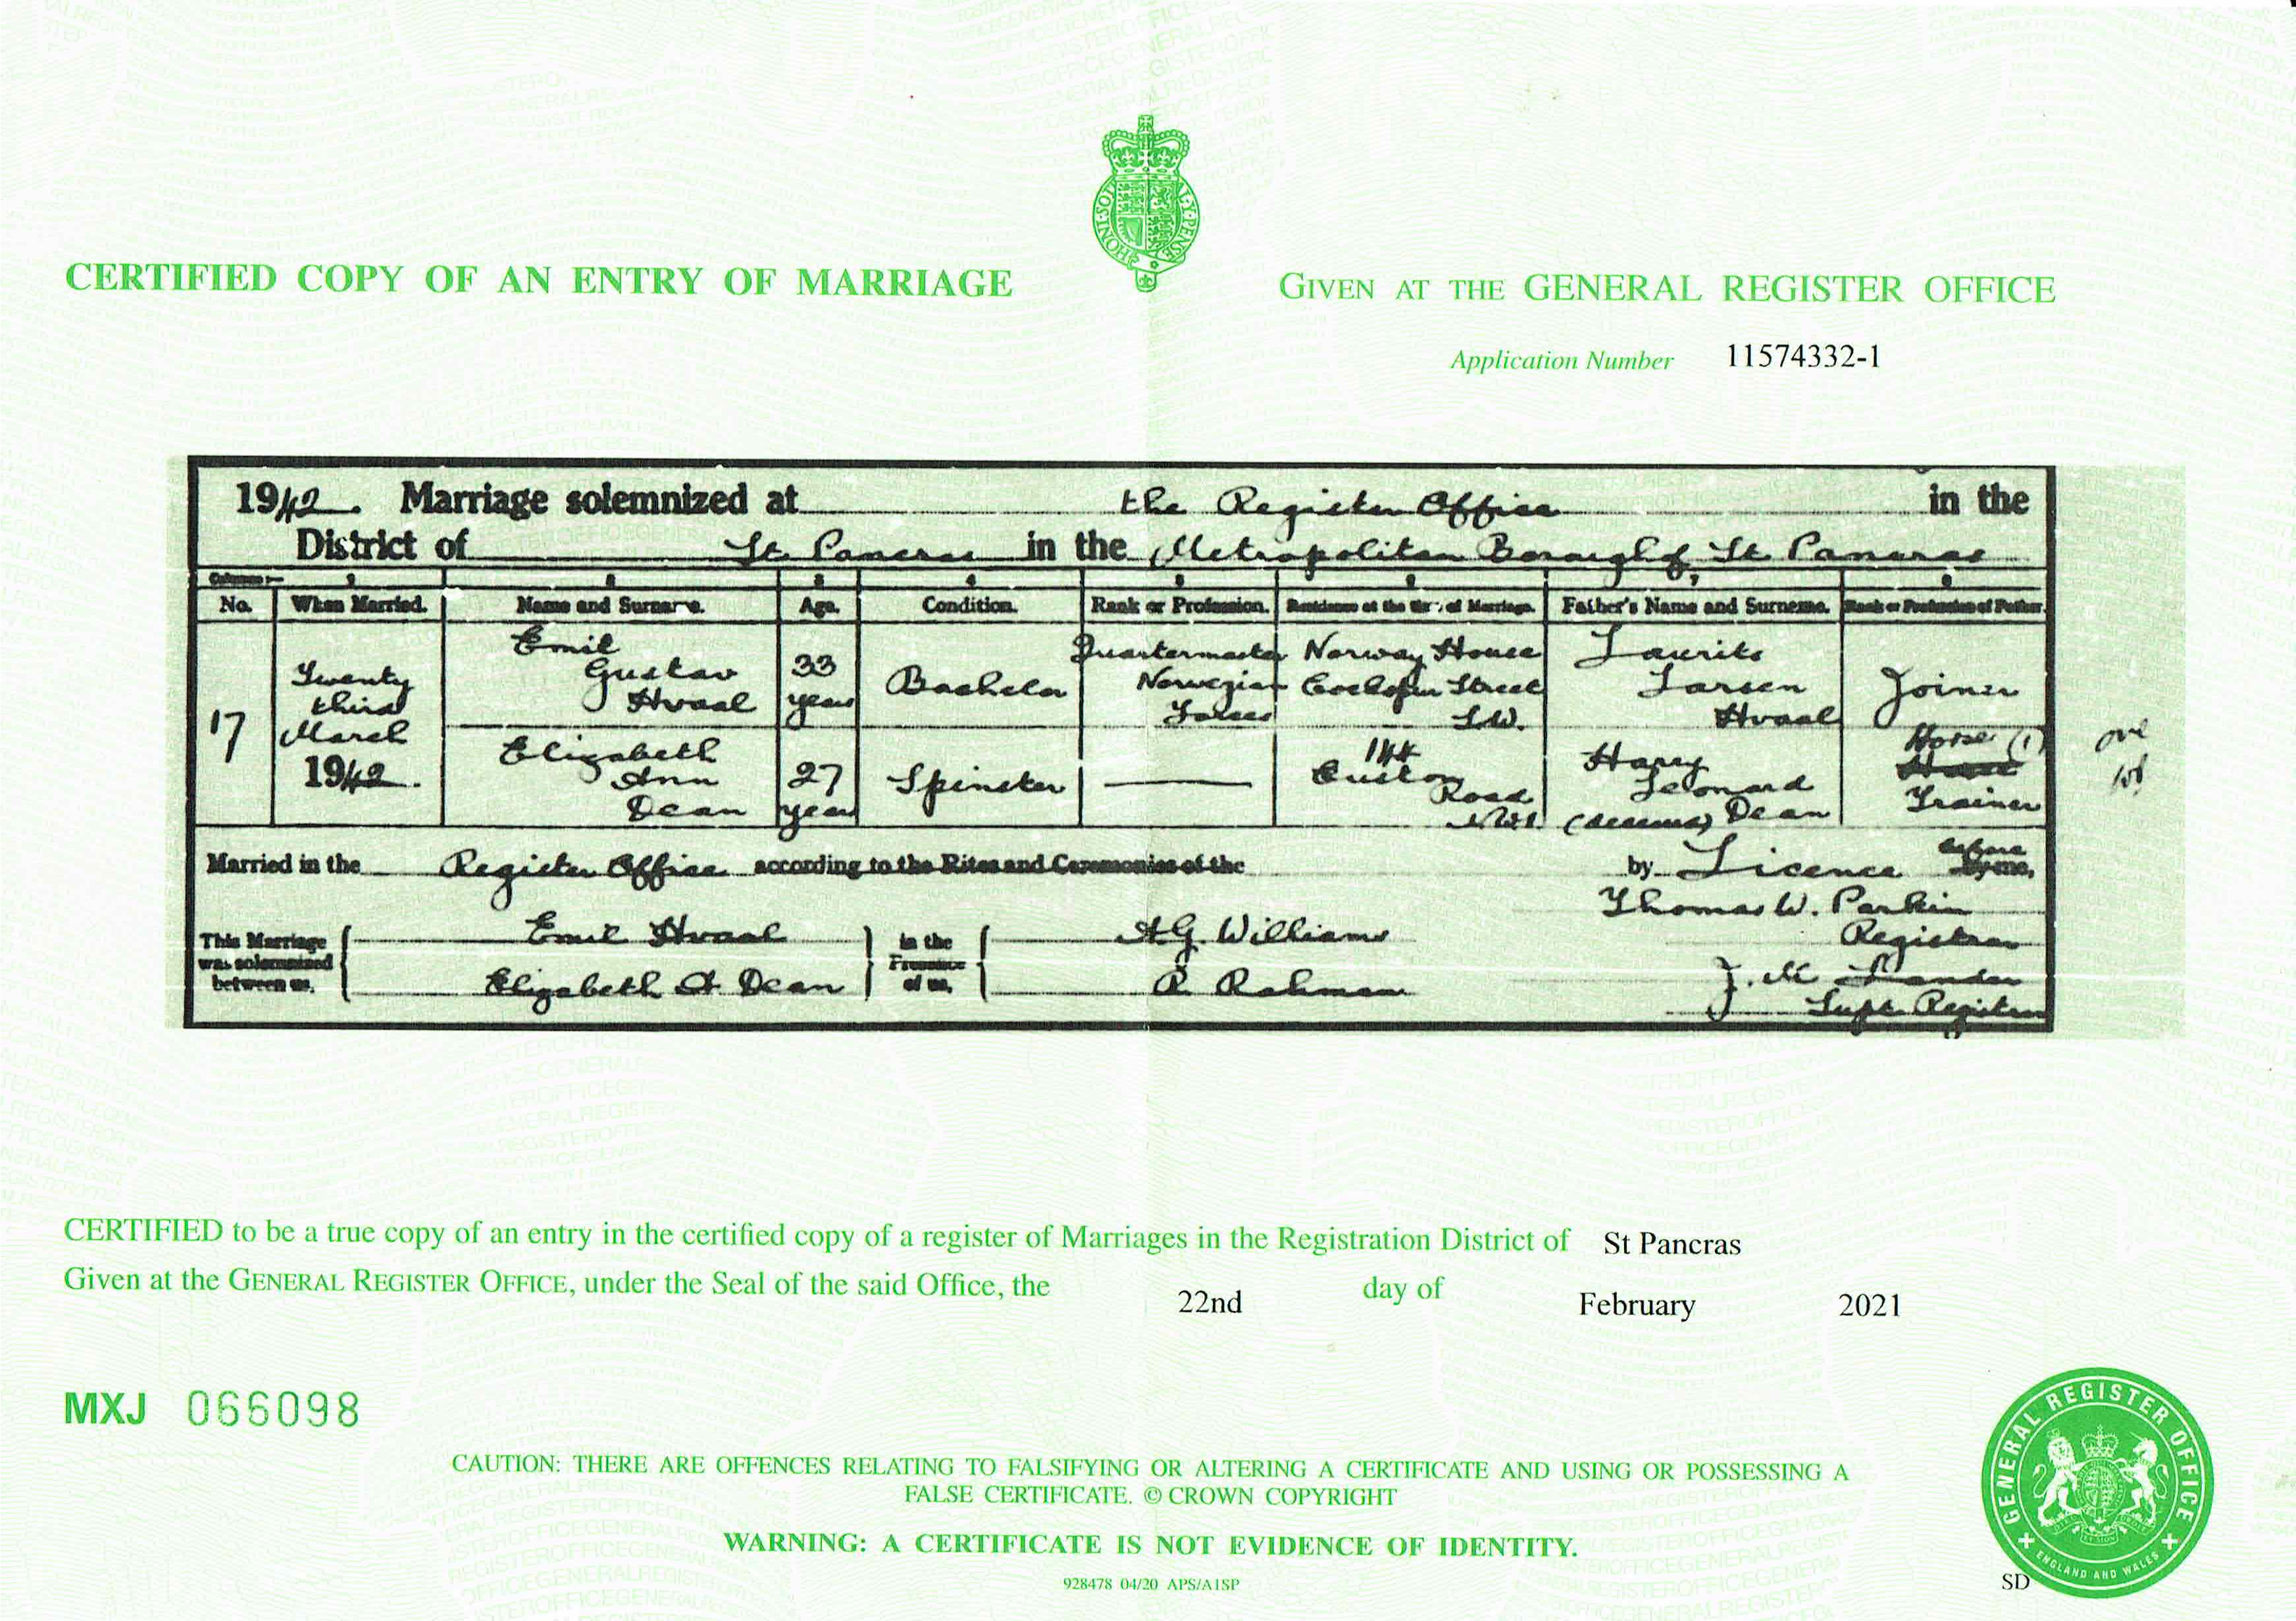 HONI·SOIT·QUI·MAL·Y·PENSE
CERTIFIED COPY OF AN ENTRY OF MARRIAGE
GIVEN AT THE GENERAL REGISTER OFFICE
Application Number 11574332-1
1942. Marriage solemnized at the Register Office in the
District of St. Pancras in the Metropolitan Borough of St. Pancras
Columns:— 1 2 3 4 5 6 7 8
No. When Married. Name and Surname. Age. Condition. Rank or Profession. Residence at the time of Marriage. Father's Name and Surname. Rank or Profession of Father.
17
Twenty
third
March
1942.
Emil
Gustav
Hvaal
33
years
Bachelor
Quartermaster
Norwegian
Forces
Norway House
Cockspur Street
S.W.
Laurits
Larsen
Hvaal
Joiner
Elizabeth
Ann
Dean
27
years
Spinster
———
144
Euston
Road
N.W.1.
Harry
Leonard
Dean
(deceased)
Horse (1)
Trainer
Married in the Register Office according to the Rites and Ceremonies of the by Licence before by me,
This Marriage
was solemnized
between us,
Emil Hvaal
Elizabeth A Dean
in the
Presence
of us,
A.G. Williams
R. Rahman
Thomas W. Parkin
Registrar
J. M.
Supt. Registrar
CERTIFIED to be a true copy of an entry in the certified copy of a register of Marriages in the Registration District of St Pancras
Given at the GENERAL REGISTER OFFICE, under the Seal of the said Office, the 22nd day of February 2021
MXJ 066098
CAUTION: THERE ARE OFFENCES RELATING TO FALSIFYING OR ALTERING A CERTIFICATE AND USING OR POSSESSING A
FALSE CERTIFICATE. © CROWN COPYRIGHT
WARNING: A CERTIFICATE IS NOT EVIDENCE OF IDENTITY.
928478 04/20 APS/A1SP
GENERAL REGISTER OFFICE
ENGLAND AND WALES
SD